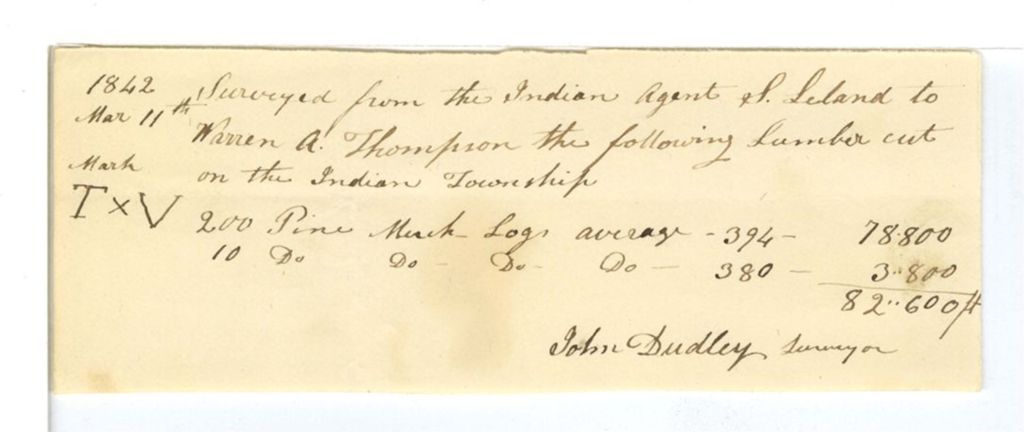 1842 Surveyed from the Indian Agent S. Leland to
Mar 11th Warren A. Thompson the following Lumber cut
Mark on the Indian Township
T x V
200 Pine Merch- Logs average - 394 - 78.800
10 Do Do - Do - Do - 380 - 3..800
82..600 ft
John Dudley Surveyor